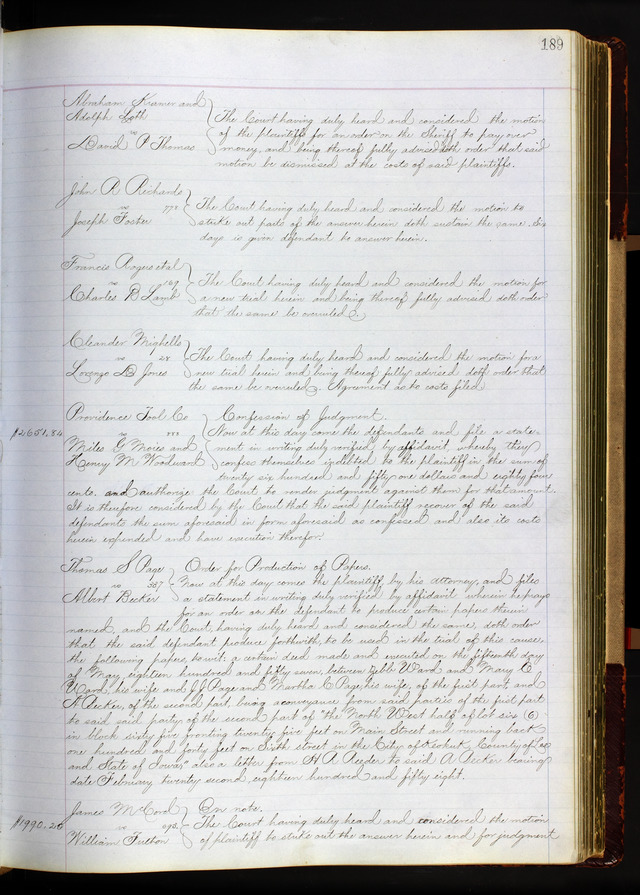 189
Abraham Kramer and
Adolph Loth
vs
David P Thomas
The Court having duly heard and considered the motion
of the plaintiffs for an order on the Sheriff to pay over
money, and being thereof fully advised doth order that said
motion be dismissed at the costs of said plaintiffs.
John R Richards
vs
Joseph Foster
The Court having duly heard and considered the motion to
strike out parts of the answer herein doth sustain the same. Six
days is given defendant to answer herein.
Francis Rogers et al
vs 167
Charles B Lamb
The Court having duly heard and considered the motion for
a new trial herein and being thereof fully advised doth order
that the same be overruled
Cleander Mighells
vs 28
Lorenzo D Jones
The Court having duly heard and considered the motion for a
new trial herein and being thereof fully advised doth order that
the same be overruled. Agreement as to costs filed
Providence Tool Co
$2651.84
vs
Miles G Moies and
Henry M Woodward
Confession of Judgment.
Now at this day come the defendants and file a state-
ment in writing duly verified by affidavit, whereby they
confess themselves indebted to the plaintiff in the sum of
twenty six hundred and fifty one dollars and eighty four
cents. and authorize the Court to render judgment against them for that amount.
It is therefore considered by the Court that the said plaintiff recover of the said
defendants the sum aforesaid in form aforesaid as confessed and also its costs
herein expended and have execution therefor.
Thomas S Page
vs 387
Albert Becker
Order for Production of Papers.
Now at this day comes the plaintiff by his attorney, and files
a statement in writing duly verified by affidavit wherein he prays
for an order on the defendant to produce certain papers therein
named, and the Court having duly heard and considered the same, doth order
that the said defendant produce forthwith, to be used in the trial of this cause,
the following papers to wit: a certain deed made and executed on the fifteenth day
of May, eighteen hundred and fifty seven, between Ward and Mary E
Ward, his wife and J J Page and Martha C Page, his wife, of the first part, and
A Becker, of the second part, being a conveyance from said parties of the first part
to said said party of the second part of "the North West half of lot six (6)
in block sixty five fronting twenty five feet on Main Street and running back
one hundred and forty feet on Sixth street in the City of Keokuk County of Lee
and State of Iowa," also a letter from H A Reeder to said A Becker bearing
date February twenty second, eighteen hundred and fifty eight.
James McCord
$1990.26
vs
William Fulton
On note.
The Court having duly heard and considered the motion
of plaintiff to strike out the answer herein and for judgment